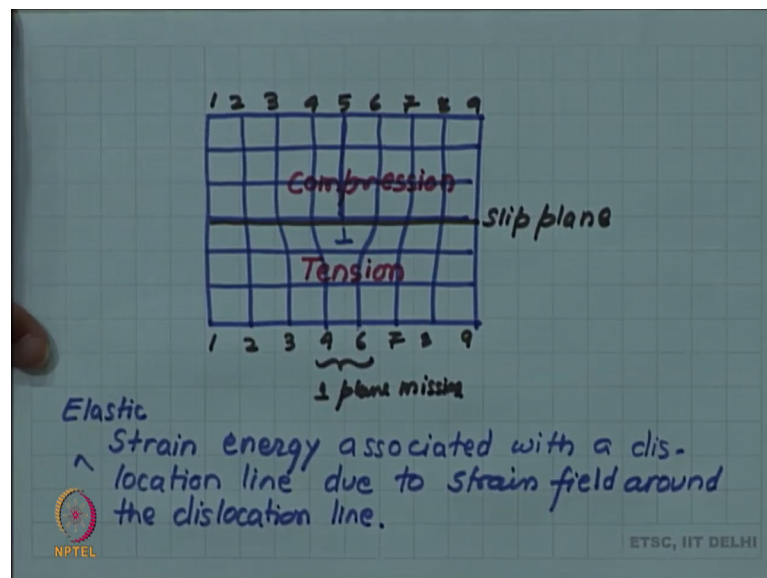 1 2 3 4 5 6 7 8 9
Compression
slip plane
⊥
Tension
1 2 3 4 6 7 8 9
1 plane missing
Elastic
^ Strain energy associated with a dis-
location line due to strain field around
the dislocation line.
NPTEL
ETSC, IIT DELHI